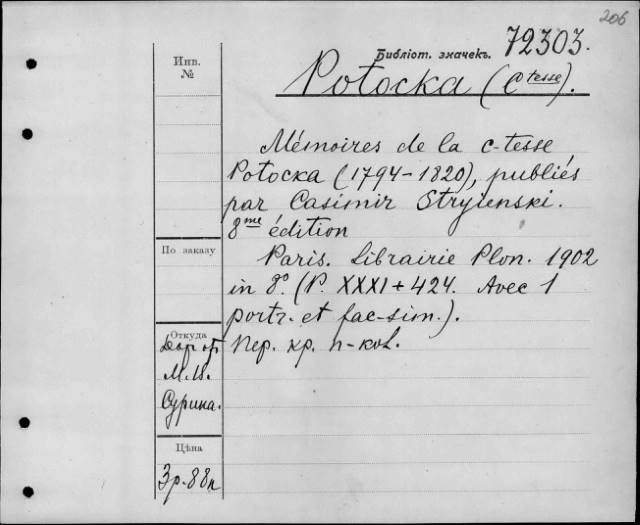 206
Библіот. значекъ. 72303.
Инв.
№
Potocka (C tesse).
Mémoires de la c-tesse
Potocka (1794-1820), publiés
par Casimir Stryienski.
8me édition
По заказу
Paris. Librairie Plon. 1902
in 8°. (P. XXXI + 424. Avec 1
portr. et fac-sim.).
Откуда
Дар от Пер. хр. п-кол.
М. И.
Сурина.
Цѣна
3р. 88к